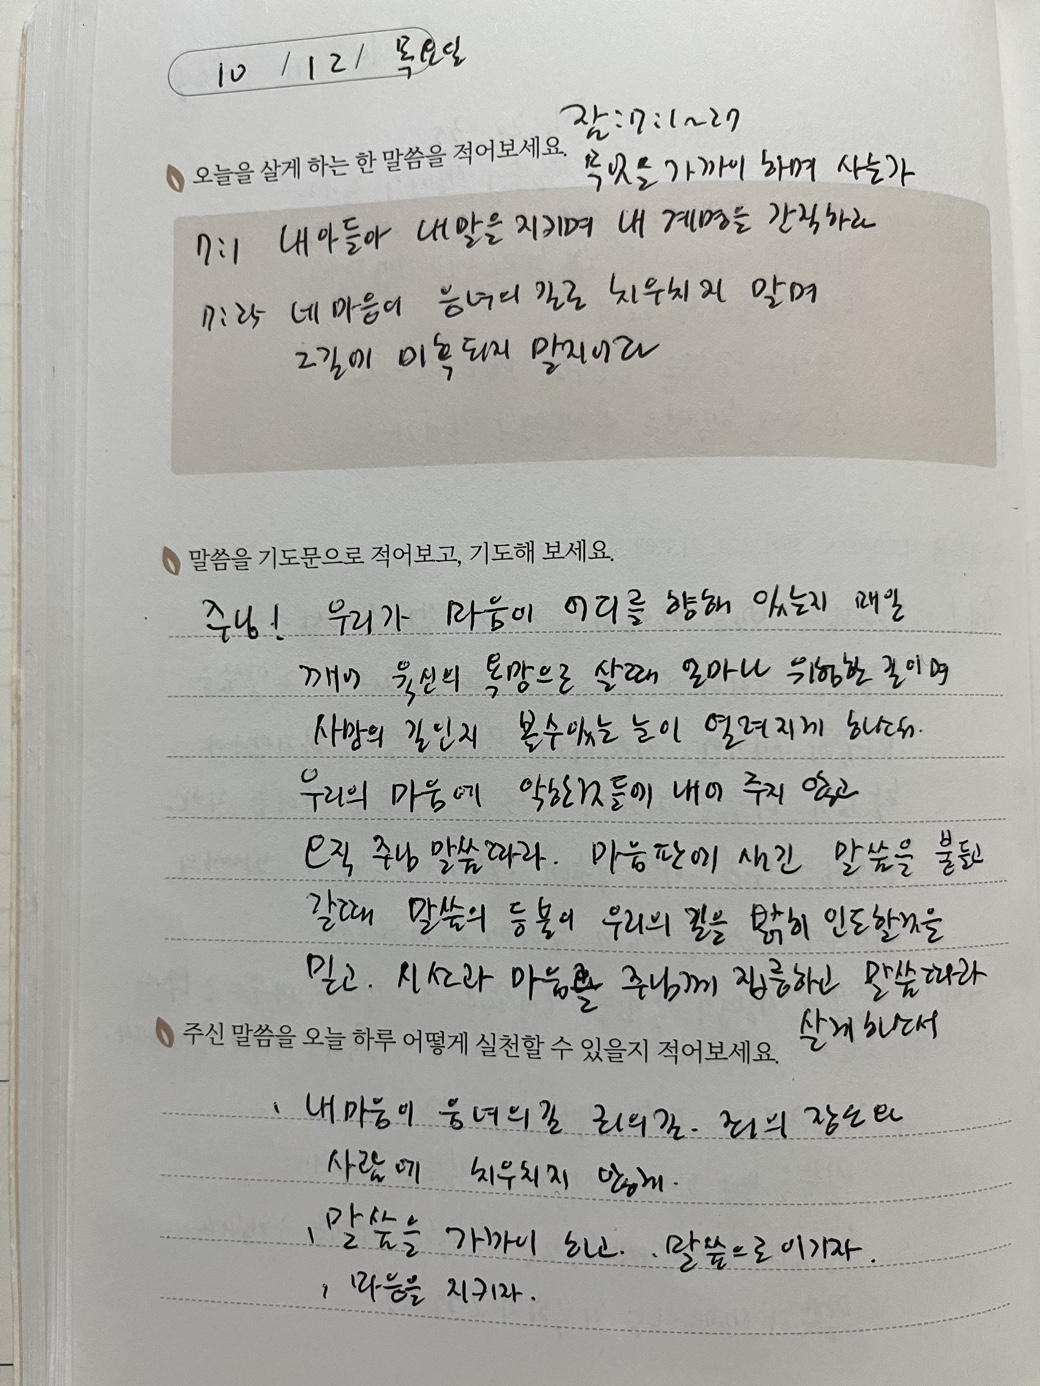 10 / 12 / 목요일
잠:7:1~27
오늘을 살게 하는 한 말씀을 적어보세요.
무엇을 가까이 하며 사는가
7:1 내 아들아 내 말을 지키며 내 계명을 간직하라
7:25 네 마음이 음녀의 길로 치우치지 말며
그길에 미혹되지 말지어다
말씀을 기도문으로 적어보고, 기도해 보세요.
주님! 우리가 마음이 어디를 향해 있는지 매일
깨어 육신의 욕망으로 살때 얼마나 위험한 길이며
사망의 길인지 볼수있는 눈이 열려지게 하소서.
우리의 마음에 악한것들에 내어 주지 않고
오직 주님 말씀따라. 마음판에 새긴 말씀을 붙들고
갈때 말씀의 등불이 우리의 길을 밝히 인도할것을
믿고. 시선과 마음을 주님께 집중하고 말씀따라
살게 하소서
주신 말씀을 오늘 하루 어떻게 실천할 수 있을지 적어보세요.
내 마음이 음녀의길 죄의길. 죄의 장소와
사람에 치우치지 않게.
말씀을 가까이 하고. 말씀으로 이기자.
마음을 지키자.